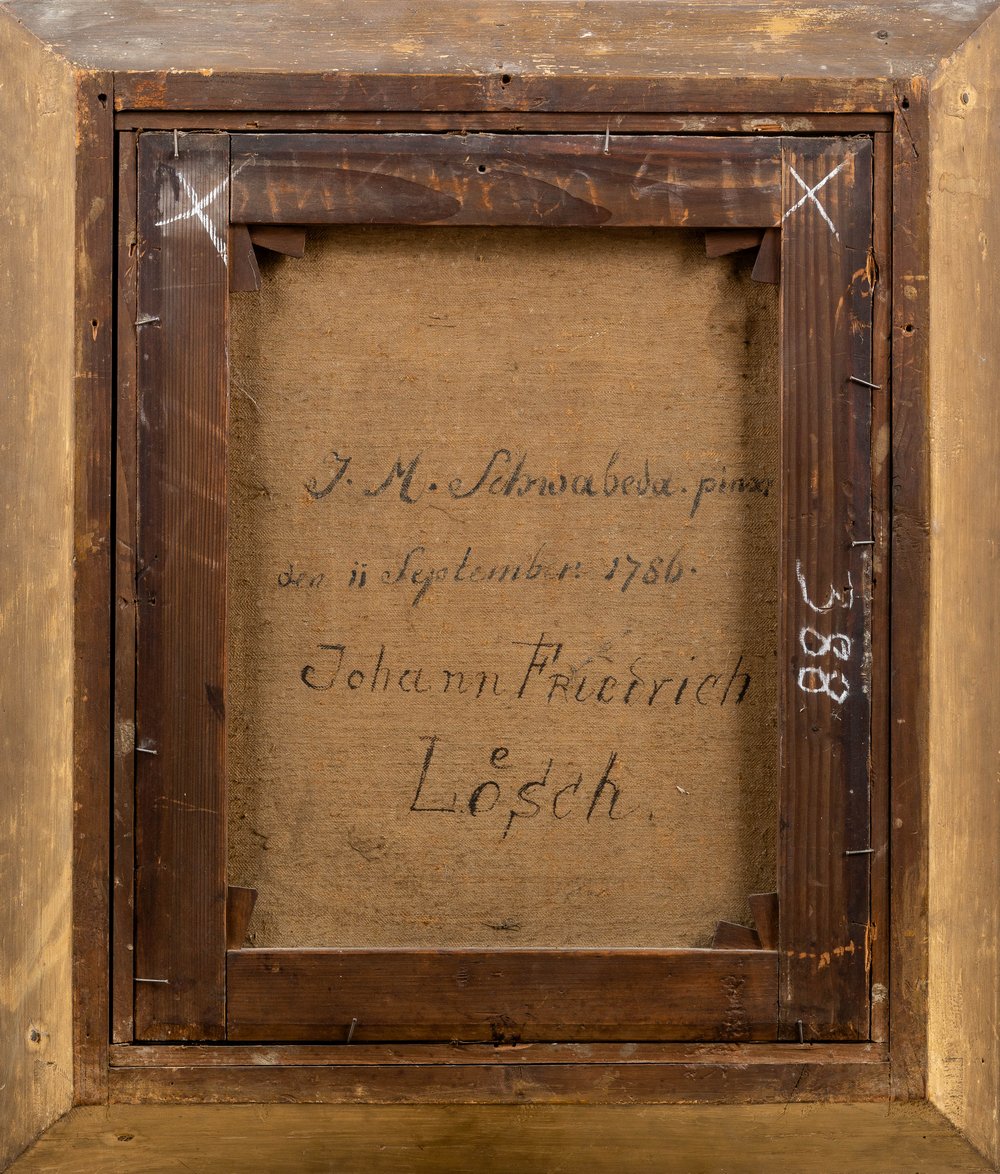 J. M. Schwabeda. pinx.
den 11 September: 1786.
Johann Friedrich
Lösch.
388
X X